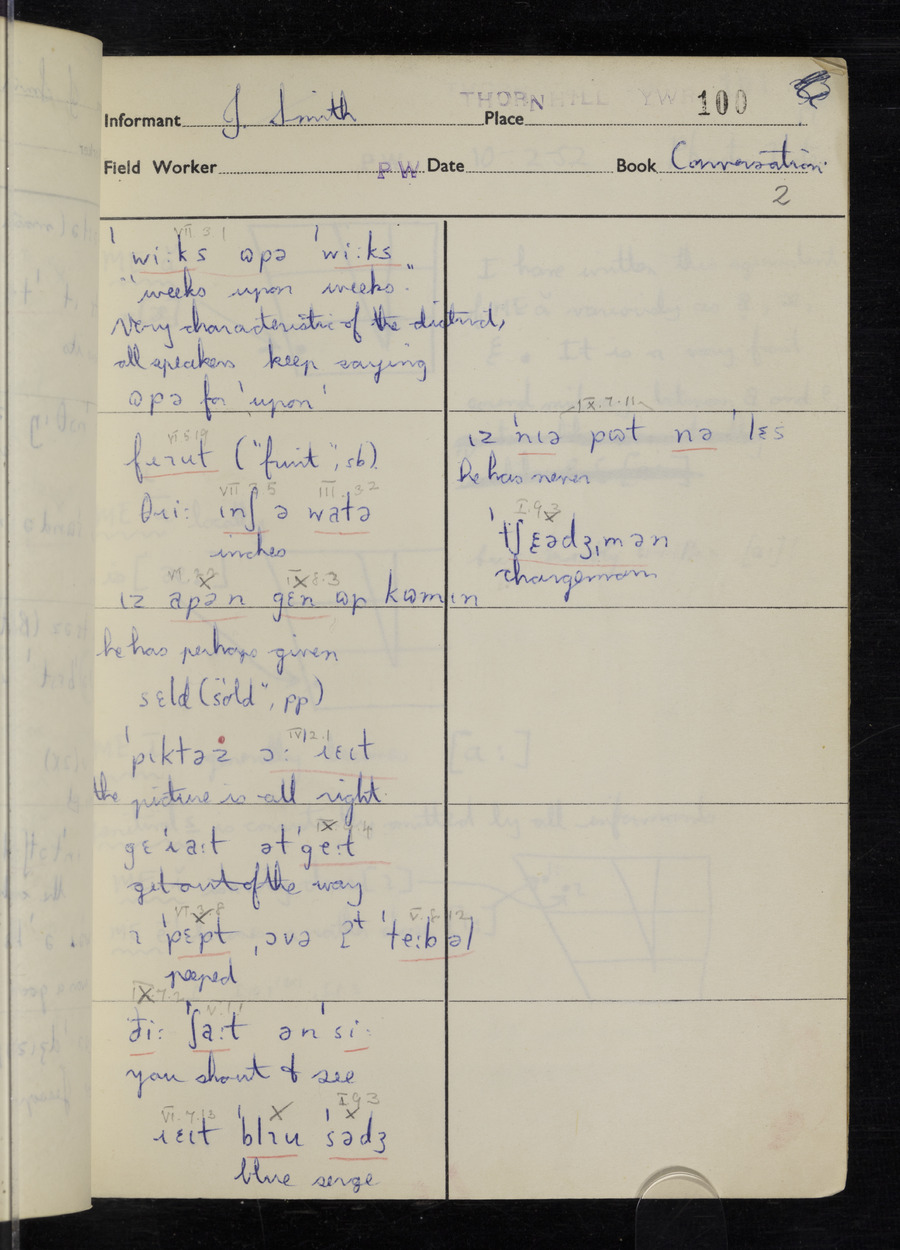 THORNHILL YWR 100
Informant J. Smith Place
Field Worker PW Date Book Conversation
2
VII.3.1
ˈwi:ks ɷpə ˈwi:ks
"weeks upon weeks".
Very characteristic of the district,
all speakers keep saying
ɷpə for 'upon'
VI.5.19
fɪɹʊt ("fruit", sb).
III.3.2
θɹi: ɪnʃ ə watə
inches
IX.8.3
ɪz apən gɛn ɷp kɷmɪn
he has perhaps given
sɛld ("sold", pp)
ˈpɪktəz ɔ: ɹɛɪt
the picture is all right.
gɛ ɹa:t ətˈge:t
get out of the way
V.8.12
ɪ ˈpɛpt ˌɔvə ʔt ˈte:bəl
peeped
IX.7.2
ði: ˈʃa:t ənˈsi:
you shout & see
VI.7.13 I.9.3
ɹɛɪt ˈblɪu ˈsədʒ
blue serge
IX.7.11
ɪz ˈnɪə pɷt nə ˈlɛs
he has never
I.9.3
ˈtʃɛədʒˌmən
chargeman